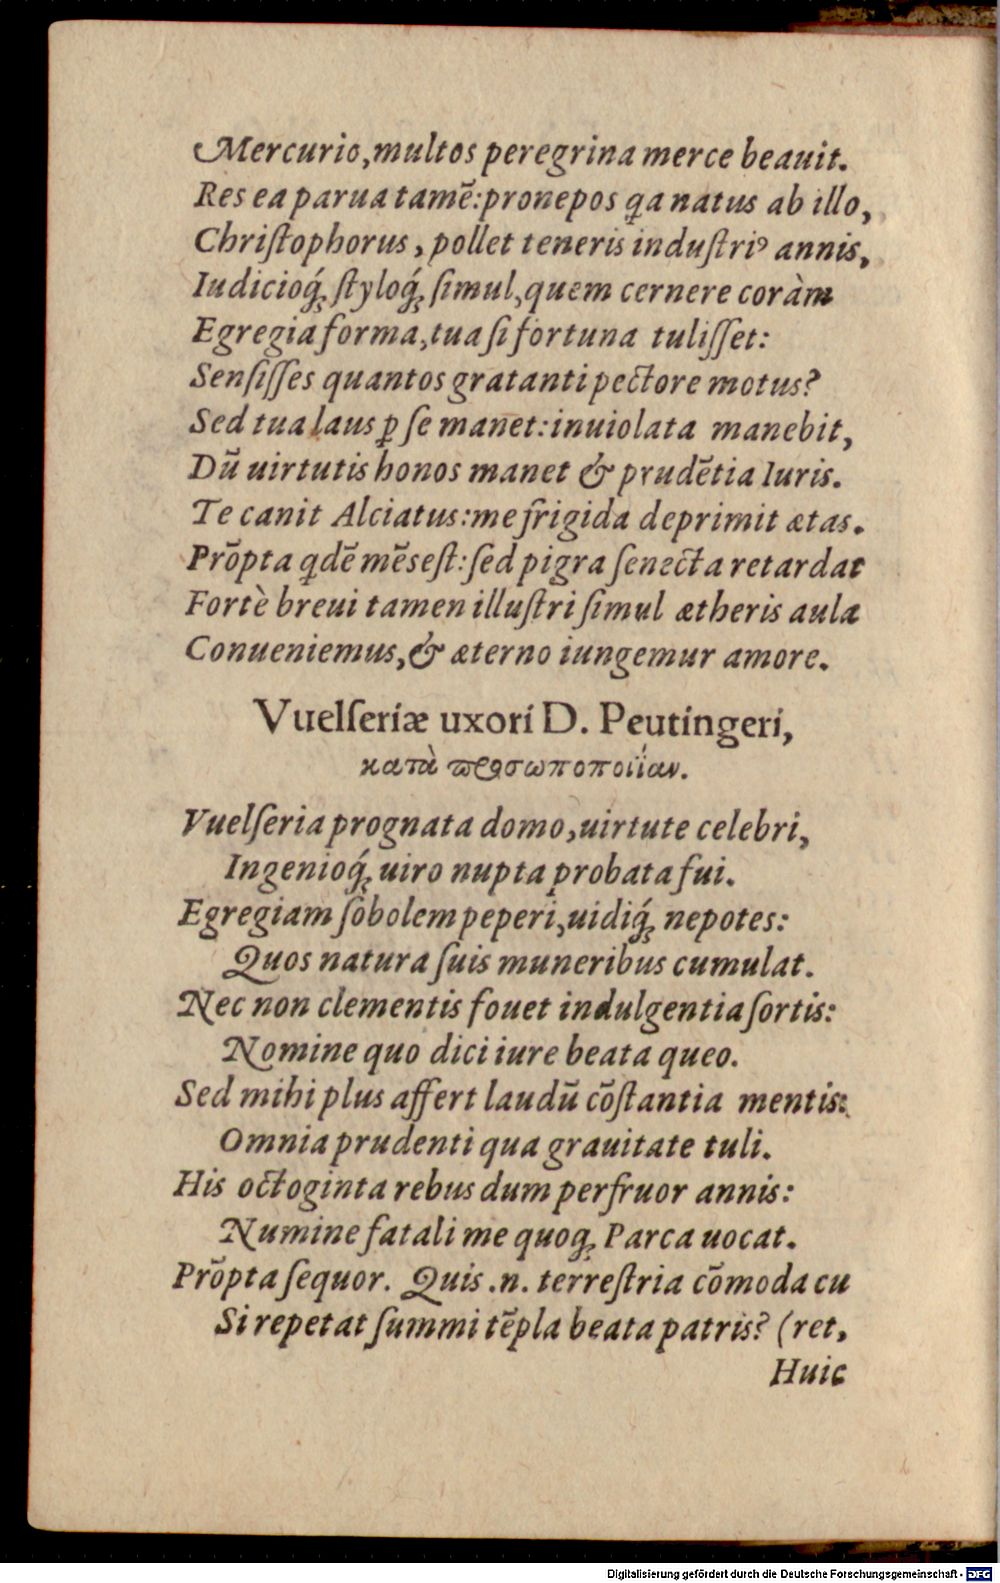 Mercurio, multos peregrina merce beauit.
Res ea parua tamẽ: pronepos ꝗa natus ab illo,
Chriſtophorus, pollet teneris induſtriꝰ annis,
Iudicioq́ꝫ ſtyloq́ꝫ ſimul, quem cernere coràm
Egregia forma, tua ſi fortuna tuliſſet:
Senſiſſes quantos gratanti pectore motus?
Sed tua laus ꝑ ſe manet: inuiolata manebit,
Dũ uirtutis honos manet & prudẽtia Iuris.
Te canit Alciatus: me frigida deprimit ætas.
Prõpta ꝗdẽ mẽs eſt: ſed pigra ſenecta retardat
Fortè breui tamen illuſtri ſimul ætheris aula
Conueniemus, & æterno iungemur amore.
Vuelſeriæ uxori D. Peutingeri,
κατὰ προσωποποιΐαν.
Vuelſeria prognata domo, uirtute celebri,
Ingenioq́ꝫ uiro nupta probata fui.
Egregiam ſobolem peperi, uidiq́ꝫ nepotes:
Quos natura ſuis muneribus cumulat.
Nec non clementis fouet indulgentia ſortis:
Nomine quo dici iure beata queo.
Sed mihi plus affert laudũ cõſtantia mentis:
Omnia prudenti qua grauitate tuli.
His octoginta rebus dum perfruor annis:
Numine fatali me quoqꝫ Parca uocat.
Prõpta ſequor. Quis .n. terreſtria cõmoda cu
Si repetat ſummi tẽpla beata patris? (ret,
Huic
Digitalisierung gefördert durch die Deutsche Forschungsgemeinschaft - DFG